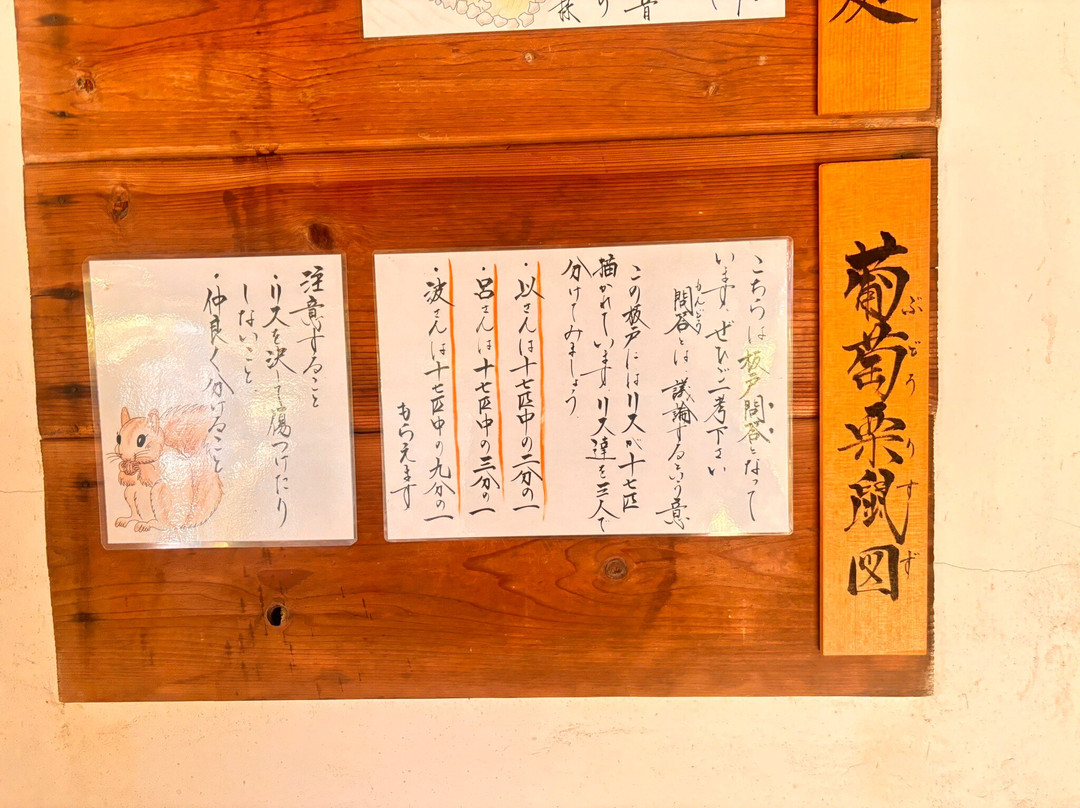 葡萄栗鼠図
ぶどうりすず
こちらは板戸問答となって
います。ぜひご一考下さい
もんどう
問答とは、議論するという意
この板戸にはリスが十七匹
描かれています。リス達を三人で
分けてみましょう。
・以さんは十七匹中の二分の一
・呂さんは十七匹中の三分の一
・波さんは十七匹中の九分の一
もらえます
注意すること
・リスを決して傷つけたり
しないこと
・仲良く分けること